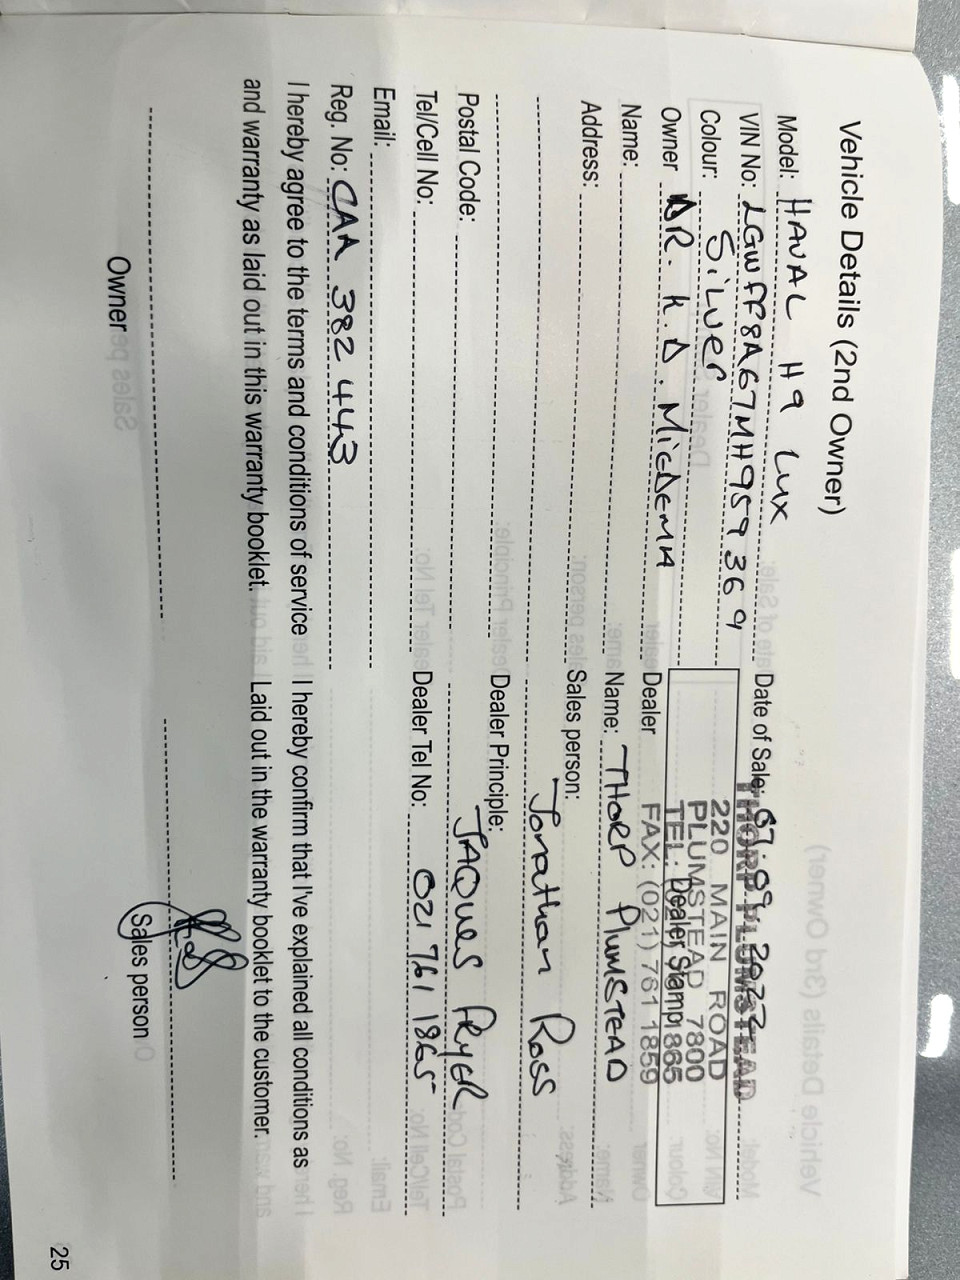 Vehicle Details (2nd Owner)
Model: HAVAL H9 Lux
VIN No: LGWFF8A67MH959369
Colour: SiLver
Owner DR. K.D.
Name:
Address:
Postal Code:
Tel/Cell No:
Email:
Reg. No: CAA 382 443
I hereby agree to the terms and conditions of service
and warranty as laid out in this warranty booklet.
Owner
Date of Sale: 07.09.2022
THORP PLUMSTEAD
220 MAIN ROAD
PLUMSTEAD 7800
TEL: 1865
Dealer Stamp
FAX: (021) 761 1859
Dealer
Name: THORP PLUMSTEAD
Sales person:
Jonathan Ross
Dealer Principle:
JAQUES PRYER
Dealer Tel No: 021 761 1865
I hereby confirm that I've explained all conditions as
Laid out in the warranty booklet to the customer.
Sales person
25